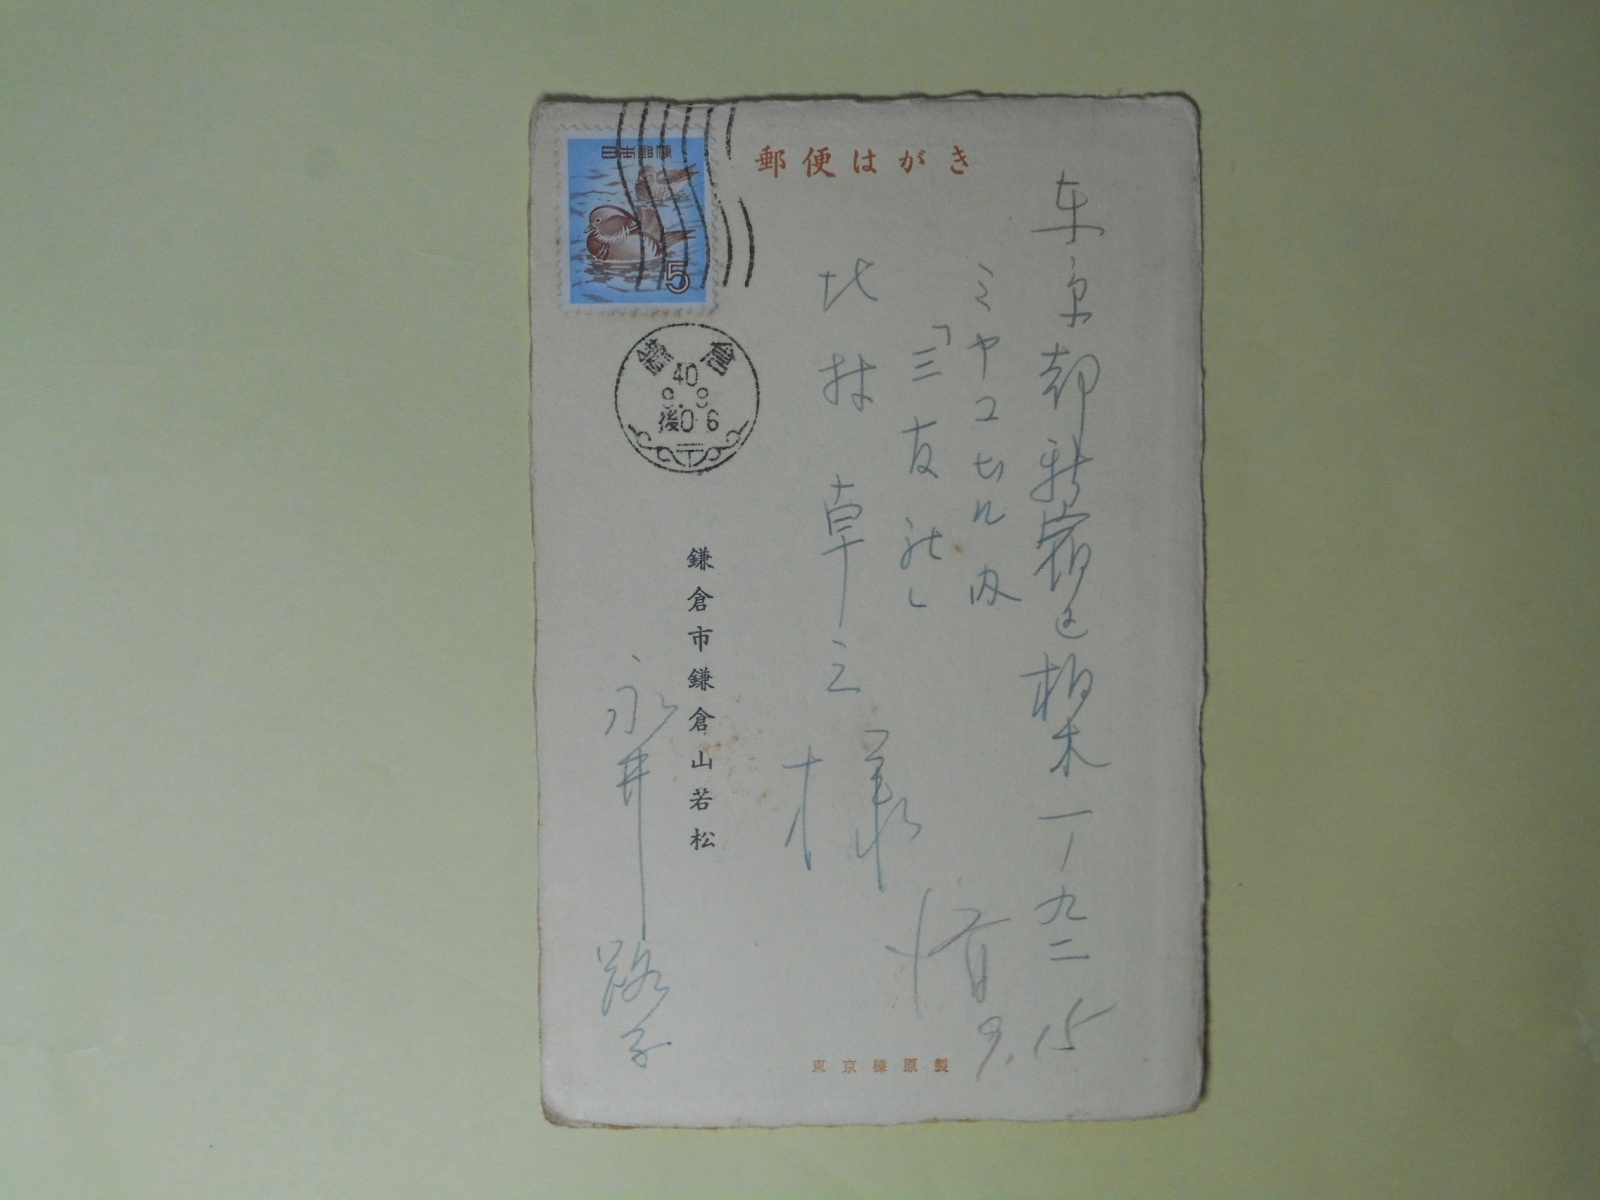 郵便はがき
日本郵便
5
鎌倉
40
9.9
後0-6
東京都新宿区柏木一ノ九二
ミヤコビル内
「三友社」
北林卓三
様
鎌倉市鎌倉山若松
永井路子
9.15
東京榛原製